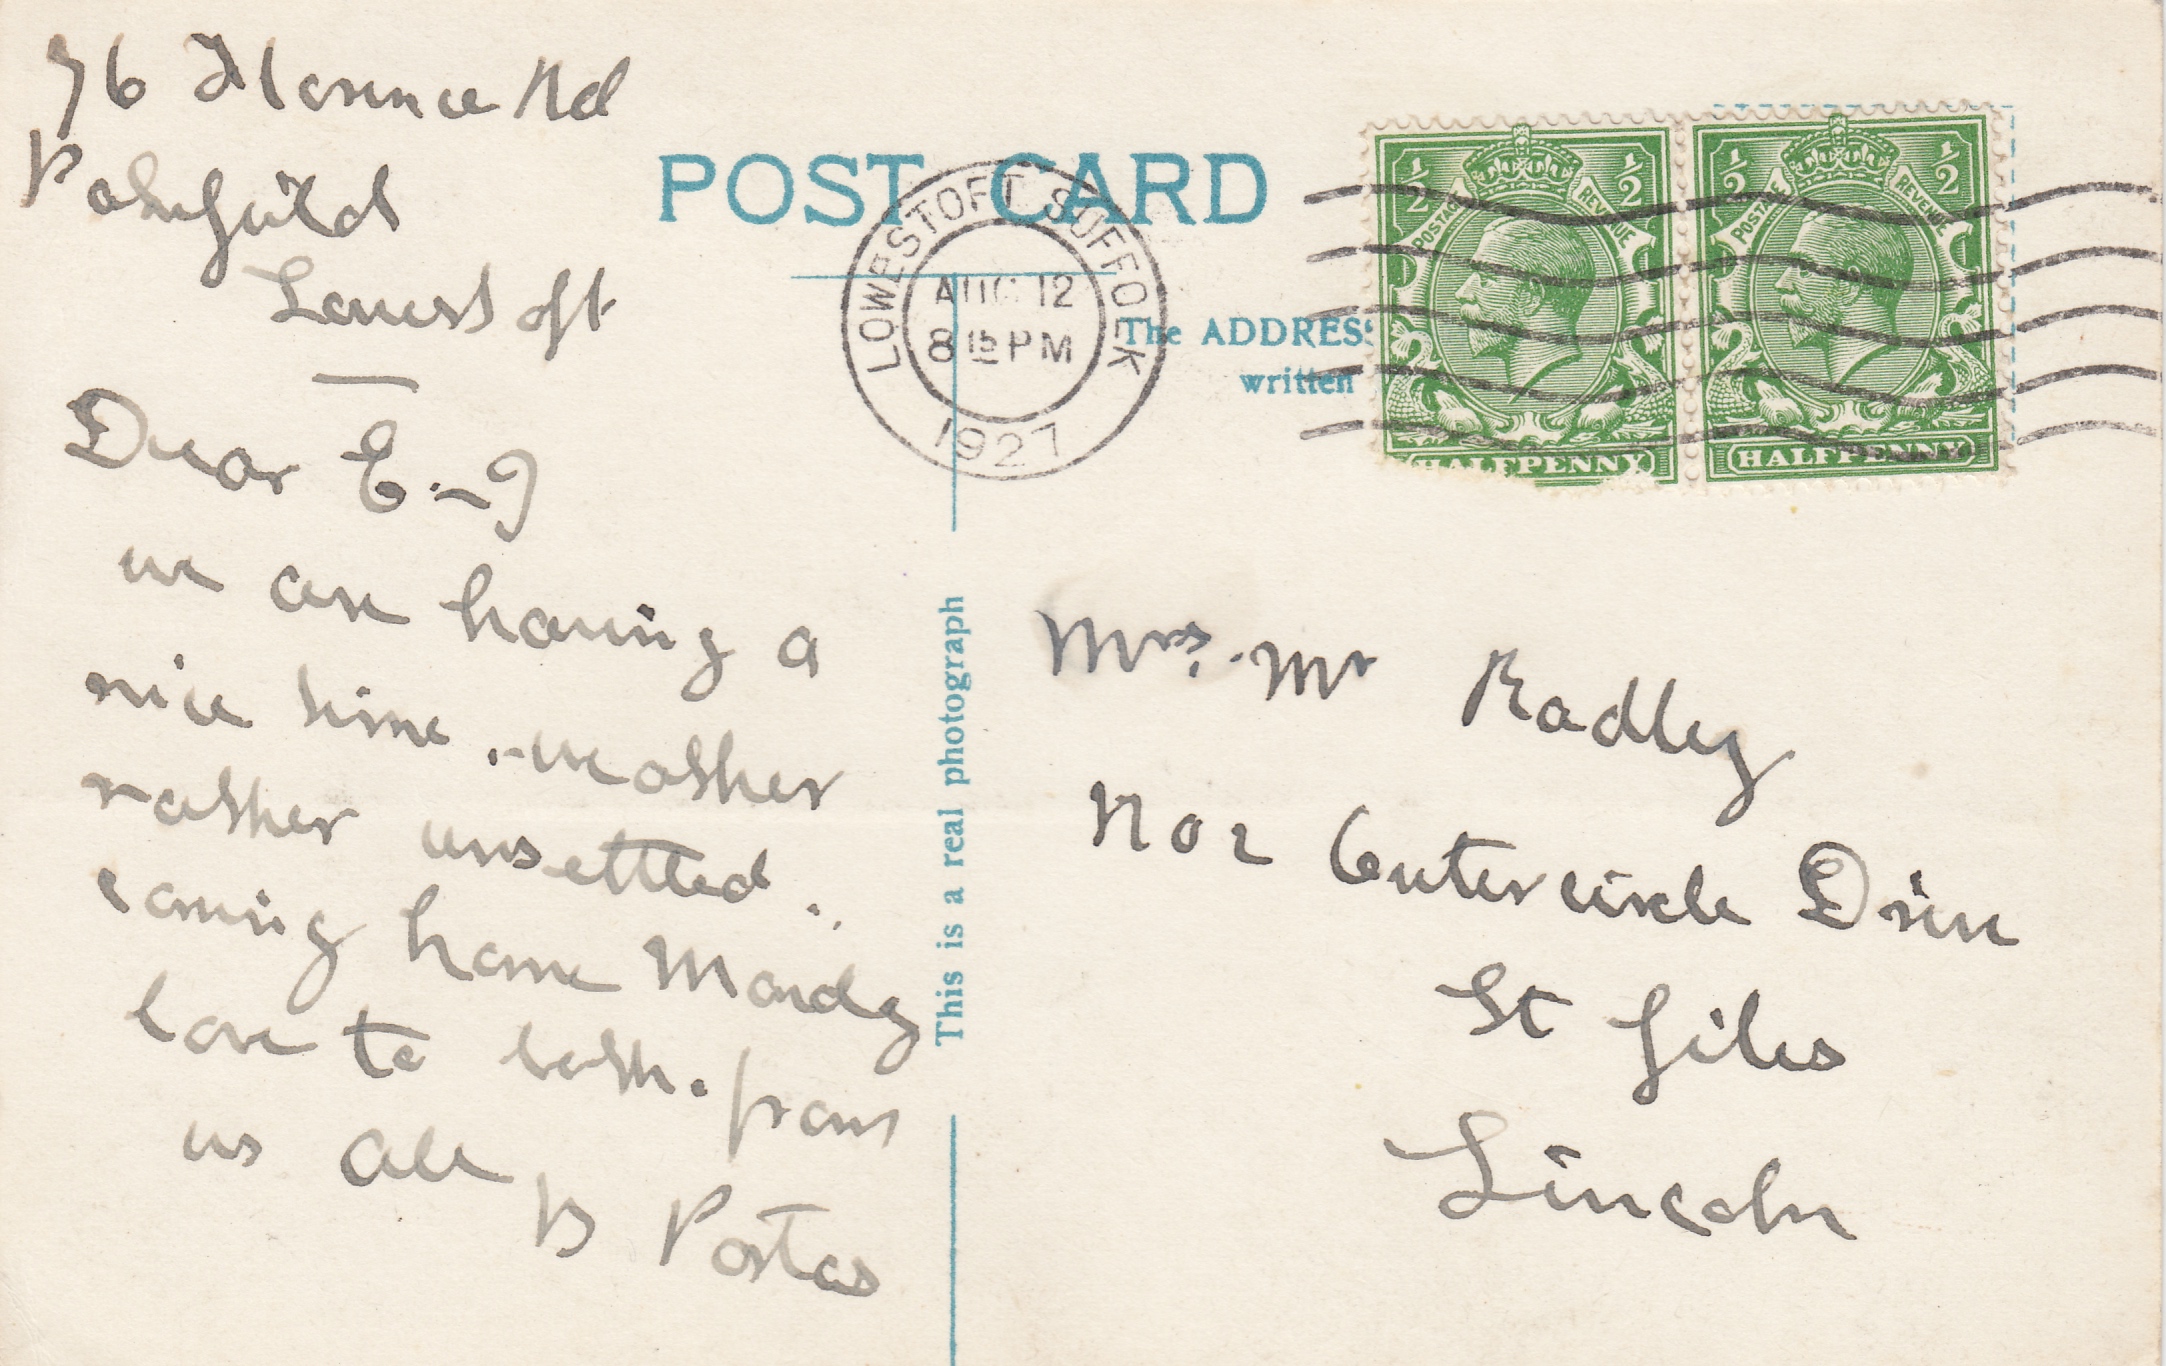 76 Florence Rd
Pakefield
Lowestoft
Dear E. - J
we are having a
nice time. - weather
rather unsettled.
coming home Monday
love to both. from
us all
B Postas
POST CARD
LOWESTOFT SUFFOLK
AUG 12
8 15 PM
1927
The ADDRESS
written
This is a real photograph
½ ½
POSTAGE REVENUE
HALFPENNY
½ ½
POSTAGE REVENUE
HALFPENNY
Mrs. Mr Radley
No 2 Outercircle Drive
St Giles
Lincoln